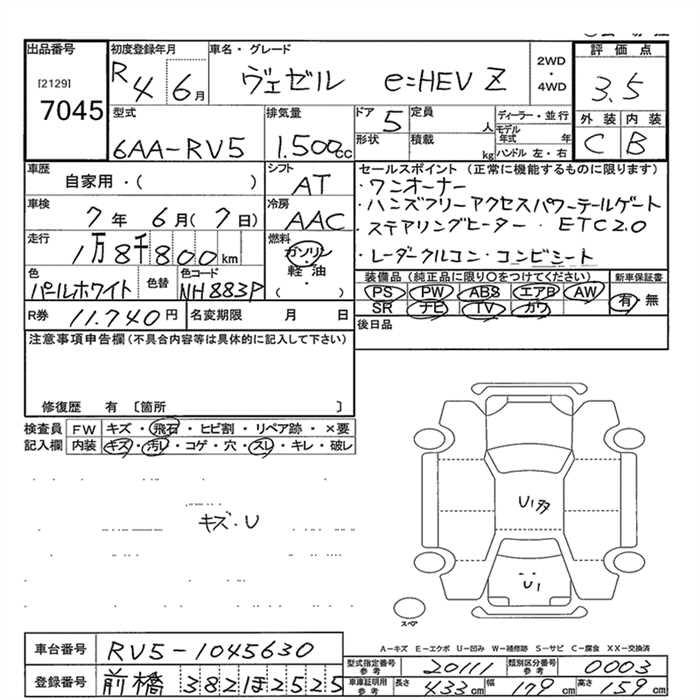 出品番号 初度登録年月 車名・グレード 2WD・4WD 評価点
[2129]
7045
R4 6月 ヴェゼル e:HEV Z 3.5
型式 排気量 ドア 5 定員 人 ディーラー・並行 外装 内装
6AA-RV5 1.500cc 形状 積載 kg モデル年式 年 C B
ハンドル 左・右
車歴 シフト セールスポイント(正常に機能するものに限ります)
自家用・( ) AT ・ワンオーナー
車検 冷房 ・ハンズフリーアクセスパワーテールゲート
7年 6月(7日) AAC ・ステアリングヒーター・ETC2.0
走行 燃料
1万8千800km ガソリン ・レーダークルコン・コンビシート
色 色替 色コード 軽油 装備品(純正品に限り○をつけてください) 新車保証書
パールホワイト NH883P ( ) PS PW ABS エアB AW 有・無
SR ナビ TV カワ
R券 11.740円 名変期限 月 日 後日品
注意事項申告欄(不具合内容等は具体的に記入して下さい)
修復歴 有 〔箇所 〕
検査員 FW キズ・飛石・ヒビ割・リペア跡・×要
記入欄 内装 キズ・汚レ・コゲ・穴・スレ・キレ・破レ
キズ・U
U1多
U1
スペア
A-キズ E-エクボ U-凹み W-補修跡 S-サビ C-腐食 XX-交換済
車台番号 RV5-1045630
型式指定番号 参考 20111 類別区分番号 参考 0003
登録番号 前橋 382ほ2525
車庫証明用 参考 長さ 433cm 幅 179cm 高さ 159cm